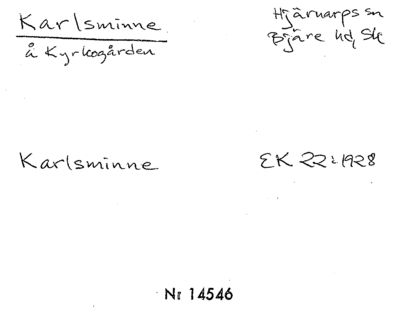 Karlsminne
å Kyrkogården
Hjärnarps sn
Bjäre hd, Sk
Karlsminne
EK 22:1928
Nr 14546